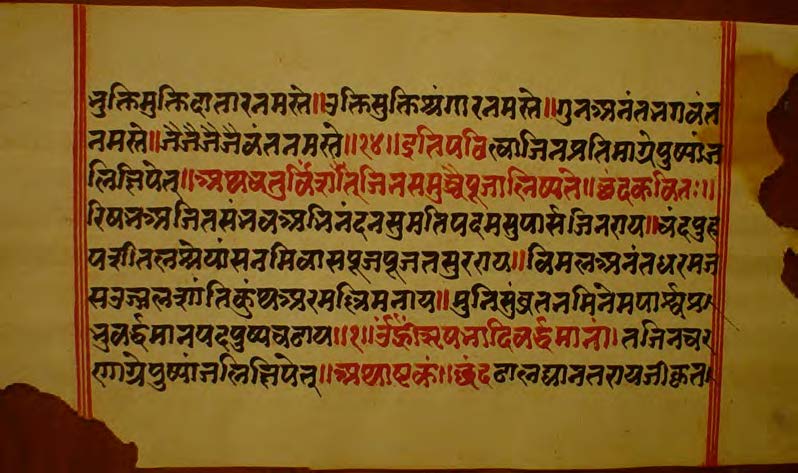 भुक्तिमुक्तिदातारनमस्ते॥भक्तिमुक्तिश्रृंगारनमस्ते॥गुनअनंतभगवंत
नमस्ते॥जैजैजैजैवंतनमस्ते॥१४॥इतिपठित्वाजिनप्रतिमाग्रेपुष्पांज
लिंक्षिपेत्॥अथचतुर्विंशतिजिनसमुच्चैपूजालिष्यते॥छंदकवितः॥
रिषभअजितसंभवअभिनंदनसुमतिपदमसुपार्सजिनराय॥चंदपुहु
पशीतलश्रेयांसनमिवासपूजपूजतसुरराय॥विमलअनंतधरमज
सउज्जलशांतिकुंथअरमल्लिमनाय॥मुनिसुंव्रतनमिनेमपार्स्वप्र
भुवर्द्धमानपदपुष्पचढाय॥१॥उंह्रींऋषभादिवर्द्धमानां।तजिनचर
णाग्रेपुष्पांजलिंक्षिपेत्॥अथाष्टकं॥छंदढालद्यानतरायजीकृत